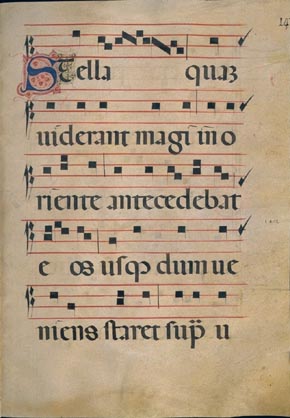 Stella quaʒ
uiderant magi in o
riente antecedebat
e os usqꝫ dum ue
niens staret sup̄ u